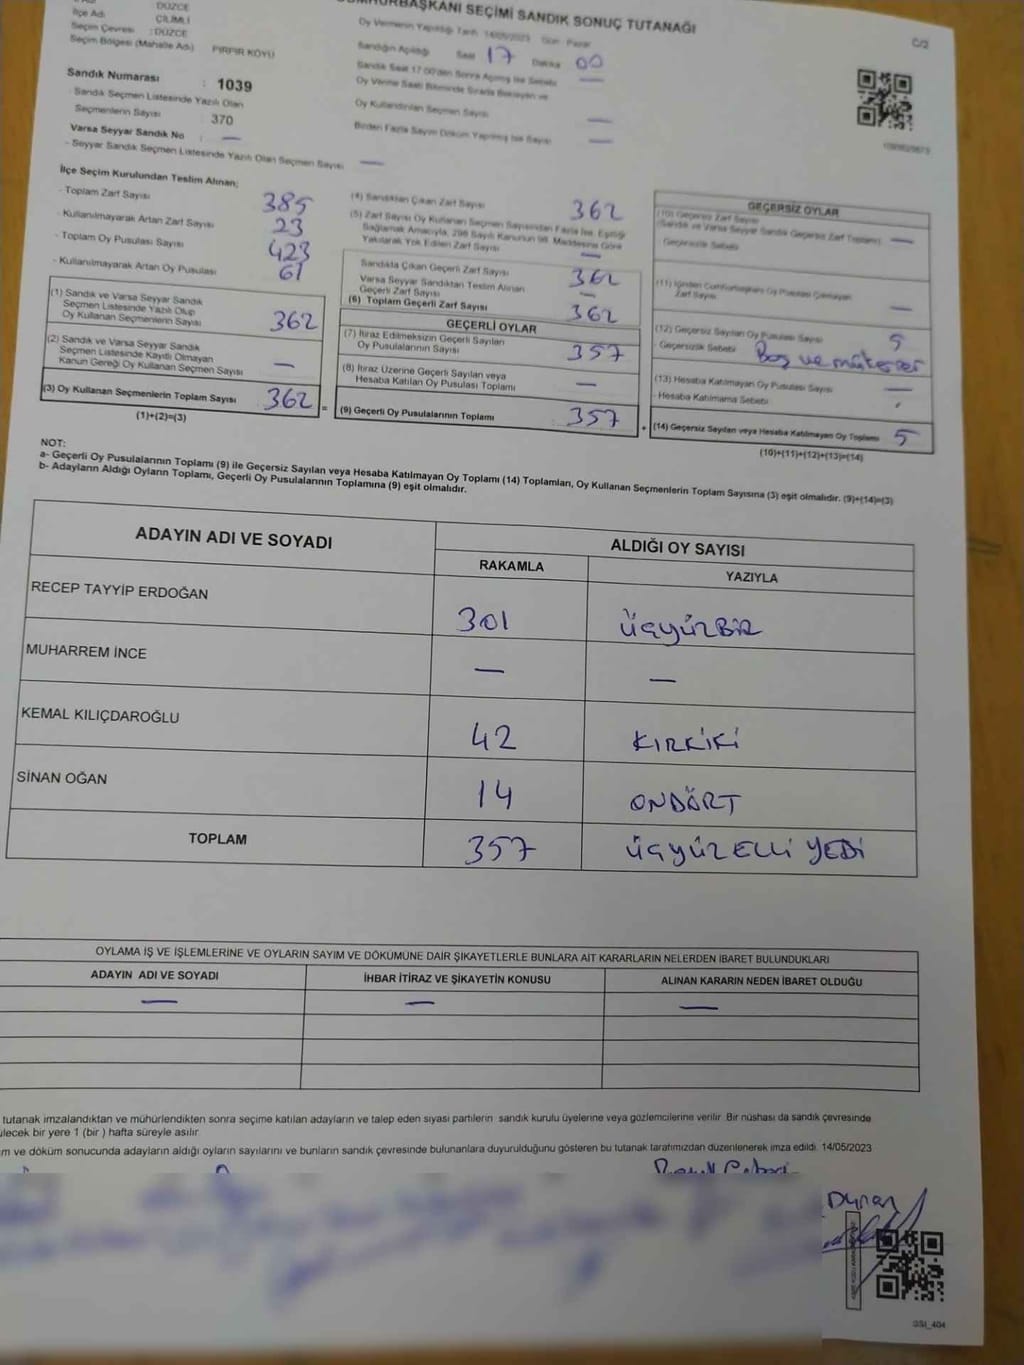 CUMHURBAŞKANI SEÇİMİ SANDIK SONUÇ TUTANAĞI
C/2
DÜZCE
İlçe Adı ÇİLİMLİ
Seçim Çevresi : DÜZCE
Seçim Bölgesi (Mahalle Adı) PIRPIR KÖYÜ
Sandık Numarası : 1039
- Sandık Seçmen Listesinde Yazılı Olan
Seçmenlerin Sayısı : 370
Varsa Seyyar Sandık No : —
- Seyyar Sandık Seçmen Listesinde Yazılı Olan Seçmen Sayısı —
Oy Vermenin Yapıldığı Tarih 14/05/2023 Gün Pazar
Sandığın Açıldığı Saat 17 Dakika 00
Sandık Saat 17.00'den Sonra Açılmış İse Sebebi —
Oy Verme Saati Bitiminde Sırada Bekleyen ve
Oy Kullandırılan Seçmen Sayısı —
Birden Fazla Sayım Döküm Yapılmış İse Sayısı —
İlçe Seçim Kurulundan Teslim Alınan;
- Toplam Zarf Sayısı 385
- Kullanılmayarak Artan Zarf Sayısı 23
- Toplam Oy Pusulası Sayısı 423
- Kullanılmayarak Artan Oy Pusulası 61
(1) Sandık ve Varsa Seyyar Sandık
Seçmen Listesinde Yazılı Olup
Oy Kullanan Seçmenlerin Sayısı 362
(2) Sandık ve Varsa Seyyar Sandık
Seçmen Listesinde Kayıtlı Olmayan
Kanun Gereği Oy Kullanan Seçmen Sayısı —
(3) Oy Kullanan Seçmenlerin Toplam Sayısı 362 =
(1)+(2)=(3)
(4) Sandıktan Çıkan Zarf Sayısı 362
(5) Zarf Sayısı Oy Kullanan Seçmen Sayısından Fazla İse, Eşitliği
Sağlamak Amacıyla, 298 Sayılı Kanunun 98. Maddesine Göre
Yakılarak Yok Edilen Zarf Sayısı —
Sandıkta Çıkan Geçerli Zarf Sayısı 362
Varsa Seyyar Sandıktan Teslim Alınan
Geçerli Zarf Sayısı —
(6) Toplam Geçerli Zarf Sayısı 362
GEÇERLİ OYLAR
(7) İtiraz Edilmeksizin Geçerli Sayılan
Oy Pusulalarının Sayısı 357
(8) İtiraz Üzerine Geçerli Sayılan veya
Hesaba Katılan Oy Pusulası Toplamı —
(9) Geçerli Oy Pusulalarının Toplamı 357 +
GEÇERSİZ OYLAR
(10) Geçersiz Zarf Sayısı
(Sandık ve Varsa Seyyar Sandık Geçersiz Zarf Toplamı) —
Geçersizlik Sebebi
(11) İçinden Cumhurbaşkanı Oy Pusulası Çıkmayan
Zarf Sayısı —
(12) Geçersiz Sayılan Oy Pusulası Sayısı 5
- Geçersizlik Sebebi Boş ve mükerrer
(13) Hesaba Katılmayan Oy Pusulası Sayısı —
- Hesaba Katılmama Sebebi
(14) Geçersiz Sayılan veya Hesaba Katılmayan Oy Toplamı 5
(10)+(11)+(12)+(13)=(14)
NOT:
a- Geçerli Oy Pusulalarının Toplamı (9) ile Geçersiz Sayılan veya Hesaba Katılmayan Oy Toplamı (14) Toplamları, Oy Kullanan Seçmenlerin Toplam Sayısına (3) eşit olmalıdır. (9)+(14)=(3)
b- Adayların Aldığı Oyların Toplamı, Geçerli Oy Pusulalarının Toplamına (9) eşit olmalıdır.
ADAYIN ADI VE SOYADI ALDIĞI OY SAYISI
RAKAMLA YAZIYLA
RECEP TAYYİP ERDOĞAN 301 ÜÇYÜZBİR
MUHARREM İNCE — —
KEMAL KILIÇDAROĞLU 42 KIRKİKİ
SİNAN OĞAN 14 ONDÖRT
TOPLAM 357 ÜÇYÜZELLİ YEDİ
OYLAMA İŞ VE İŞLEMLERİNE VE OYLARIN SAYIM VE DÖKÜMÜNE DAİR ŞİKAYETLERLE BUNLARA AİT KARARLARIN NELERDEN İBARET BULUNDUKLARI
ADAYIN ADI VE SOYADI İHBAR İTİRAZ VE ŞİKAYETİN KONUSU ALINAN KARARIN NEDEN İBARET OLDUĞU
— — —
tutanak imzalandıktan ve mühürlendikten sonra seçime katılan adayların ve talep eden siyasi partilerin sandık kurulu üyelerine veya gözlemcilerine verilir. Bir nüshası da sandık çevresinde
ilecek bir yere 1 (bir) hafta süreyle asılır.
m ve döküm sonucunda adayların aldığı oyların sayılarını ve bunların sandık çevresinde bulunanlara duyurulduğunu gösteren bu tutanak tarafımızdan düzenlenerek imza edildi. 14/05/2023
SSI_404